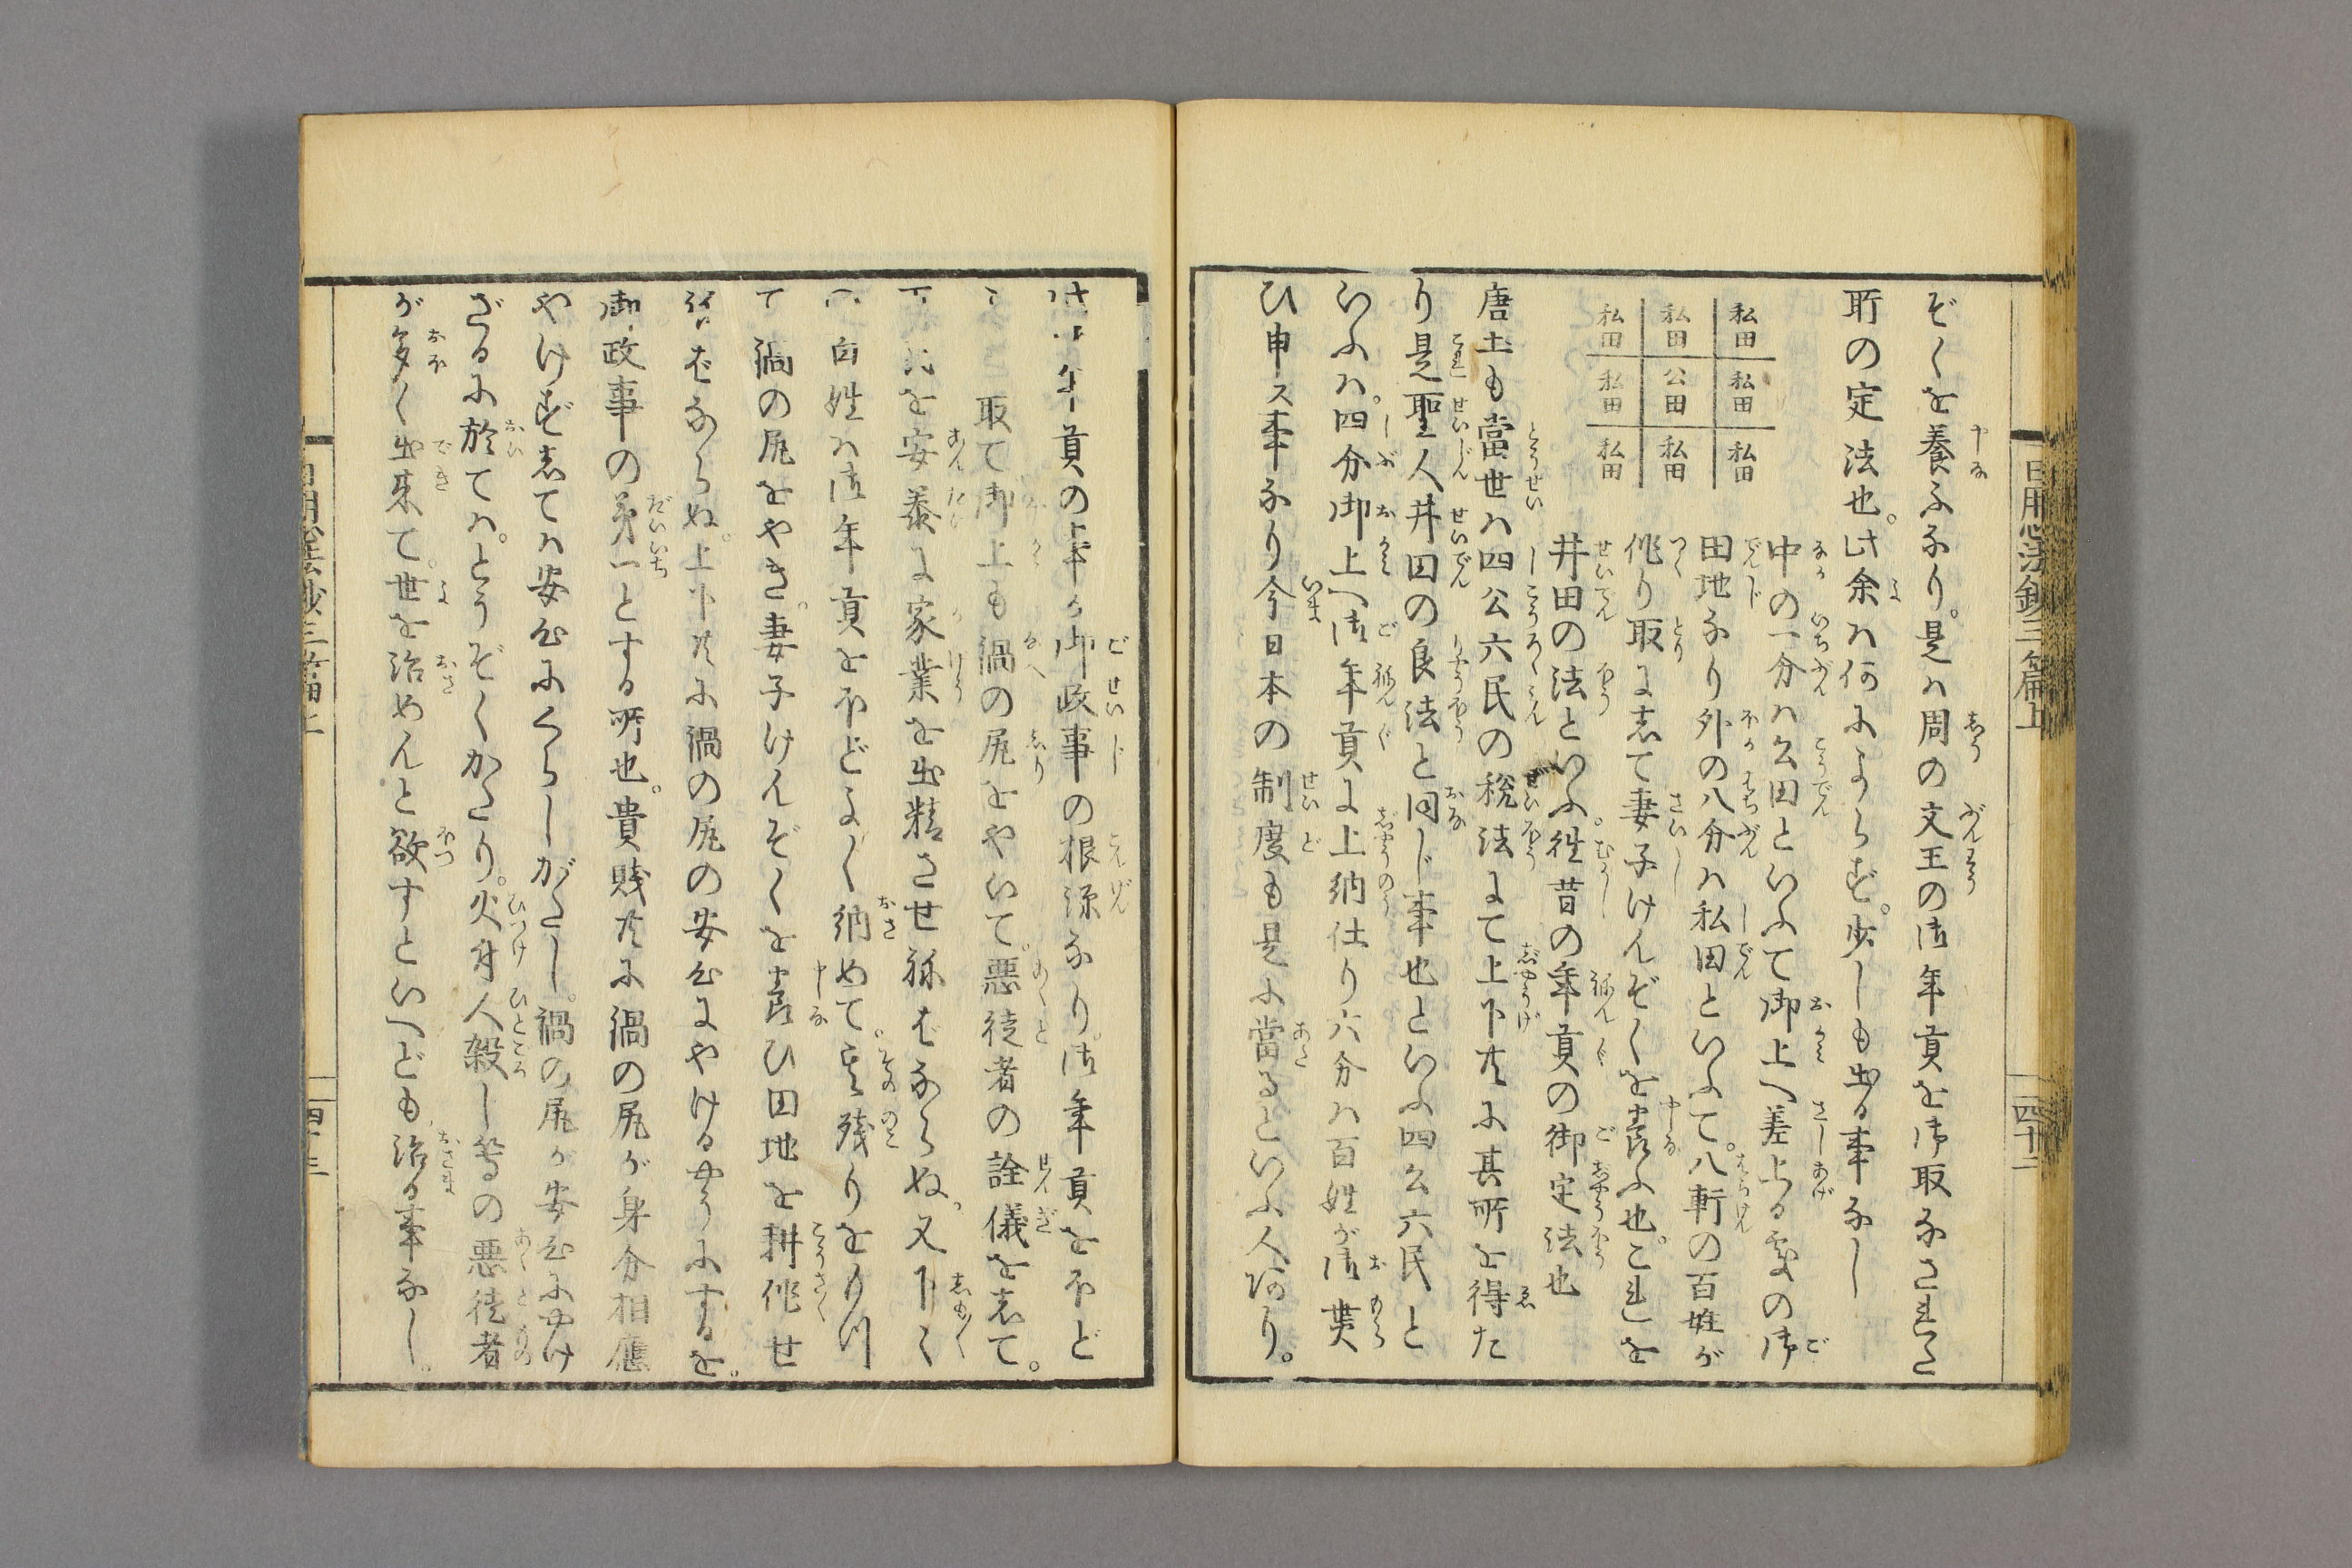 日用心法鈔三篇上
四十二
ぞくを養ふなり。是ハ周の文王の御年貢を御取なされた
所の定法也。此余ハ何によらず。少しも出る事なし
私田 私田 私田
私田 公田 私田
私田 私田 私田
中の一分ハ公田といふて御上へ差上る処の御
田地なり外の八分ハ私田といふて。八軒の百姓が
作り取にして妻子けんぞくを養ふ也。これを
井田の法といふ。往昔の年貢の御定法也
唐土も當世ハ四公六民の税法にて上下共に其所を得た
り是聖人井田の良法と同じ事也といふ四公六民と
いふハ。四分御上へ御年貢に上納仕り六分ハ百姓が御貰
ひ申ス事なり今日本の制度も是に當るといふ人あり。
年貢の事が御政事の根源なり。御年貢をほど
取て御上も鍋の尻をやいて。悪徒者の詮儀をして。
を安泰に家業を出精させねばならぬ。又下〻
百姓ハ御年貢をほどよく納めて。其残りをもつ
て鍋の尻をやき。妻子けんぞくを養ひ田地を耕作せ
ねばならぬ。上下共に鍋の尻の安心にやけるやうにするを。
御政事の第一とする所也。貴賤共に鍋の尻が身分相應
やけずしてハ安心にくらしがたし。鍋の尻が安心にやけ
ざるに於てハ。とうぞくかたり。火付人殺し等の悪徒者
が多く出来て。世を治めんと欲すといへども。治る事なし。